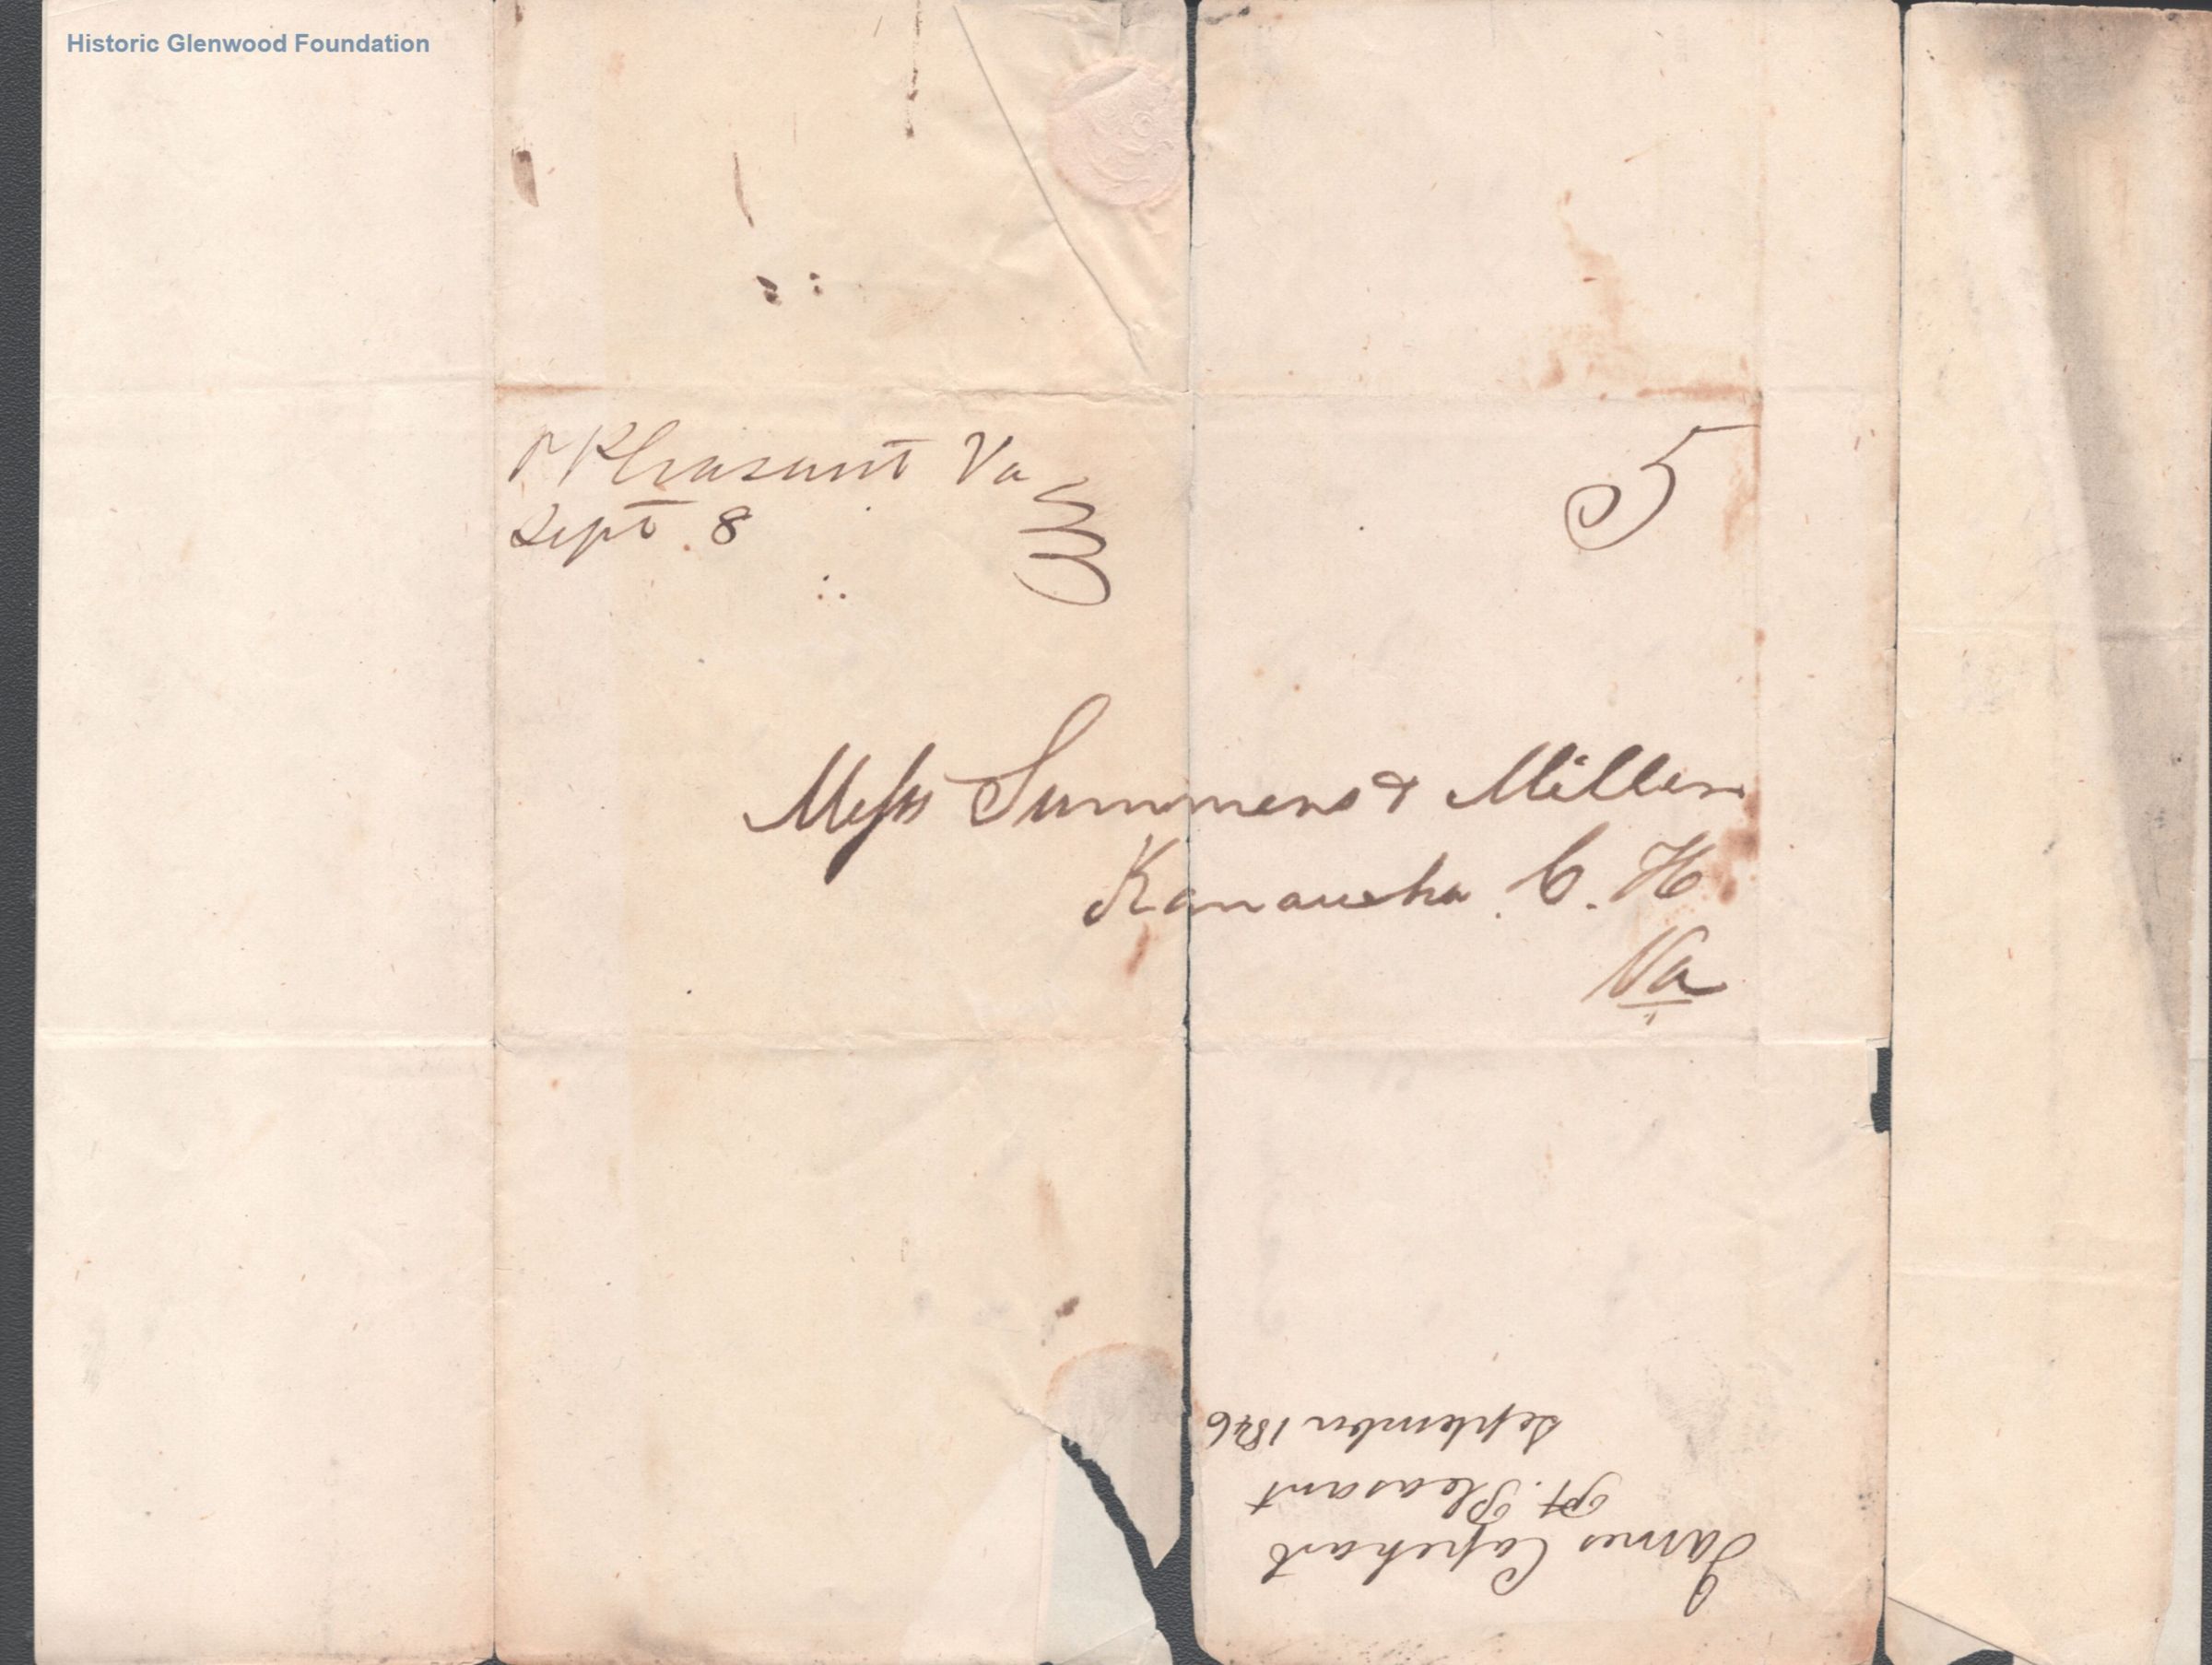 Historic Glenwood Foundation
Pt Pleasant Va
Sept. 8
5
Messrs Summers & Miller
Kanawha C. H
Va
James Capehart
Pt. Pleasant
September 1846